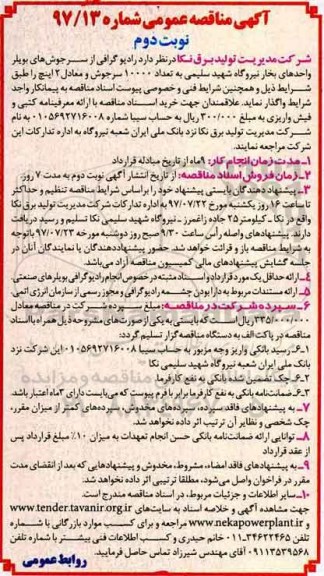 آگهی مناقصه عمومی شماره ۹۷/۱۳
نوبت دوم
شرکت مدیریت تولید برق نکا در نظر دارد رادیو گرافی از سرجوش‌های بویلر
واحدهای بخار نیروگاه شهید سلیمی به تعداد ۱۰۰۰۰ سرجوش و معادل ۲ اینچ را طبق
شرایط ذیل و همچنین شرایط فنی و خصوصی پیوست اسناد مناقصه به پیمانکار واجد
شرایط واگذار نماید. علاقمندان جهت خرید اسناد مناقصه با ارائه معرفینامه کتبی و
فیش واریزی به مبلغ ۳۰۰/۰۰۰ ریال به حساب سیبا شماره ۰۱۰۵۶۹۲۷۱۶۰۰۸ به نام
شرکت مدیریت تولید برق نکا نزد بانک ملی ایران شعبه نیروگاه به اداره تدارکات این
شرکت مراجعه نمایند.
۱ـ مدت زمان انجام کار: ۹ ماه از تاریخ مبادله قرارداد
۲ـ زمان فروش اسناد مناقصه: از تاریخ انتشار آگهی نوبت دوم به مدت ۷ روز.
۳ـ پیشنهاد دهندگان بایستی پیشنهاد خود را بر اساس شرایط مناقصه تنظیم و حداکثر
تا ساعت ۱۶ روز یکشنبه مورخ ۹۷/۰۷/۲۲ به اداره تدارکات شرکت مدیریت تولید برق نکا
واقع در نکا ـ کیلومتر ۲۵ جاده زاغمرز ـ نیروگاه شهید سلیمی نکا تسلیم و رسید دریافت
دارند. پیشنهادهای واصله رأس ساعت ۹/۳۰ صبح روز دوشنبه مورخه ۹۷/۰۷/۲۳ با توجه
به شرایط مناقصه باز و قرائت خواهد شد. حضور پیشنهاددهندگان یا نمایندگان آنان در
جلسه گشایش پیشنهادهای مالی کمیسیون مناقصه آزاد می‌باشد.
۴ـ ارائه حداقل یک مورد قرارداد و اسناد مثبته در خصوص انجام رادیو گرافی بویلرهای صنعتی
۵ـ ارائه مستندات مربوط به دارا بودن چشمه رادیوگرافی و مجوز رسمی از سازمان انرژی اتمی
۶ـ سپرده شرکت در مناقصه: مبلغ سپرده شرکت در مناقصه معادل
۳۳۵/۰۰۰/۰۰۰ ریال است که بایستی به یکی از صورت‌های مشروحه ذیل همراه با اسناد
مناقصه در پاکت الف به دستگاه مناقصه گزار تسلیم گردد:
۶ـ۱ـ رسید بانکی واریز وجه مزبور به حساب سیبا ۰۱۰۵۶۹۲۷۱۶۰۰۸ این شرکت نزد
بانک ملی ایران شعبه نیروگاه شهید سلیمی نکا
۶ـ۲ـ چک تضمین شده بانکی به نفع کارفرما.
۶ـ۳ـ ضمانت‌نامه بانکی به نفع کارفرما برابر با فرم پیوست که می‌بایست دارای ۳ ماه اعتبار باشد.
۷ـ به پیشنهادهای فاقد سپرده، سپرده‌های مخدوش، سپرده‌های کمتر از میزان مقرر،
چک شخصی و نظایر آن ترتیب اثر داده نخواهد شد.
۸ـ توانایی ارائه ضمانت‌نامه بانکی حسن انجام تعهدات به میزان ۱۰٪ مبلغ قرارداد پس
از عقد قرارداد
۹ـ به پیشنهادهای فاقد امضاء، مشروط، مخدوش و پیشنهادهایی که بعد از انقضای مدت
مقرر در فراخوان واصل می‌شود، مطلقا ترتیبی اثر داده نخواهد شد.
۱۰ـ سایر اطلاعات و جزئیات مربوط، در اسناد مناقصه مندرج است.
جهت مشاهده آگهی و خلاصه اسناد به سایت‌های www.tender.tavanir.org.ir
و www.nekapowerplant.ir مراجعه و برای کسب موارد بازرگانی با شماره
تلفن ۳۴۶۲۲۴۶۵-۰۱۱ خانم حیدری و کسب اطلاعات فنی بیشتر با شماره تلفن
۰۹۱۱۳۵۳۹۵۶۸ آقای مهندس شیرزاد تماس حاصل فرمایید.
روابط عمومی